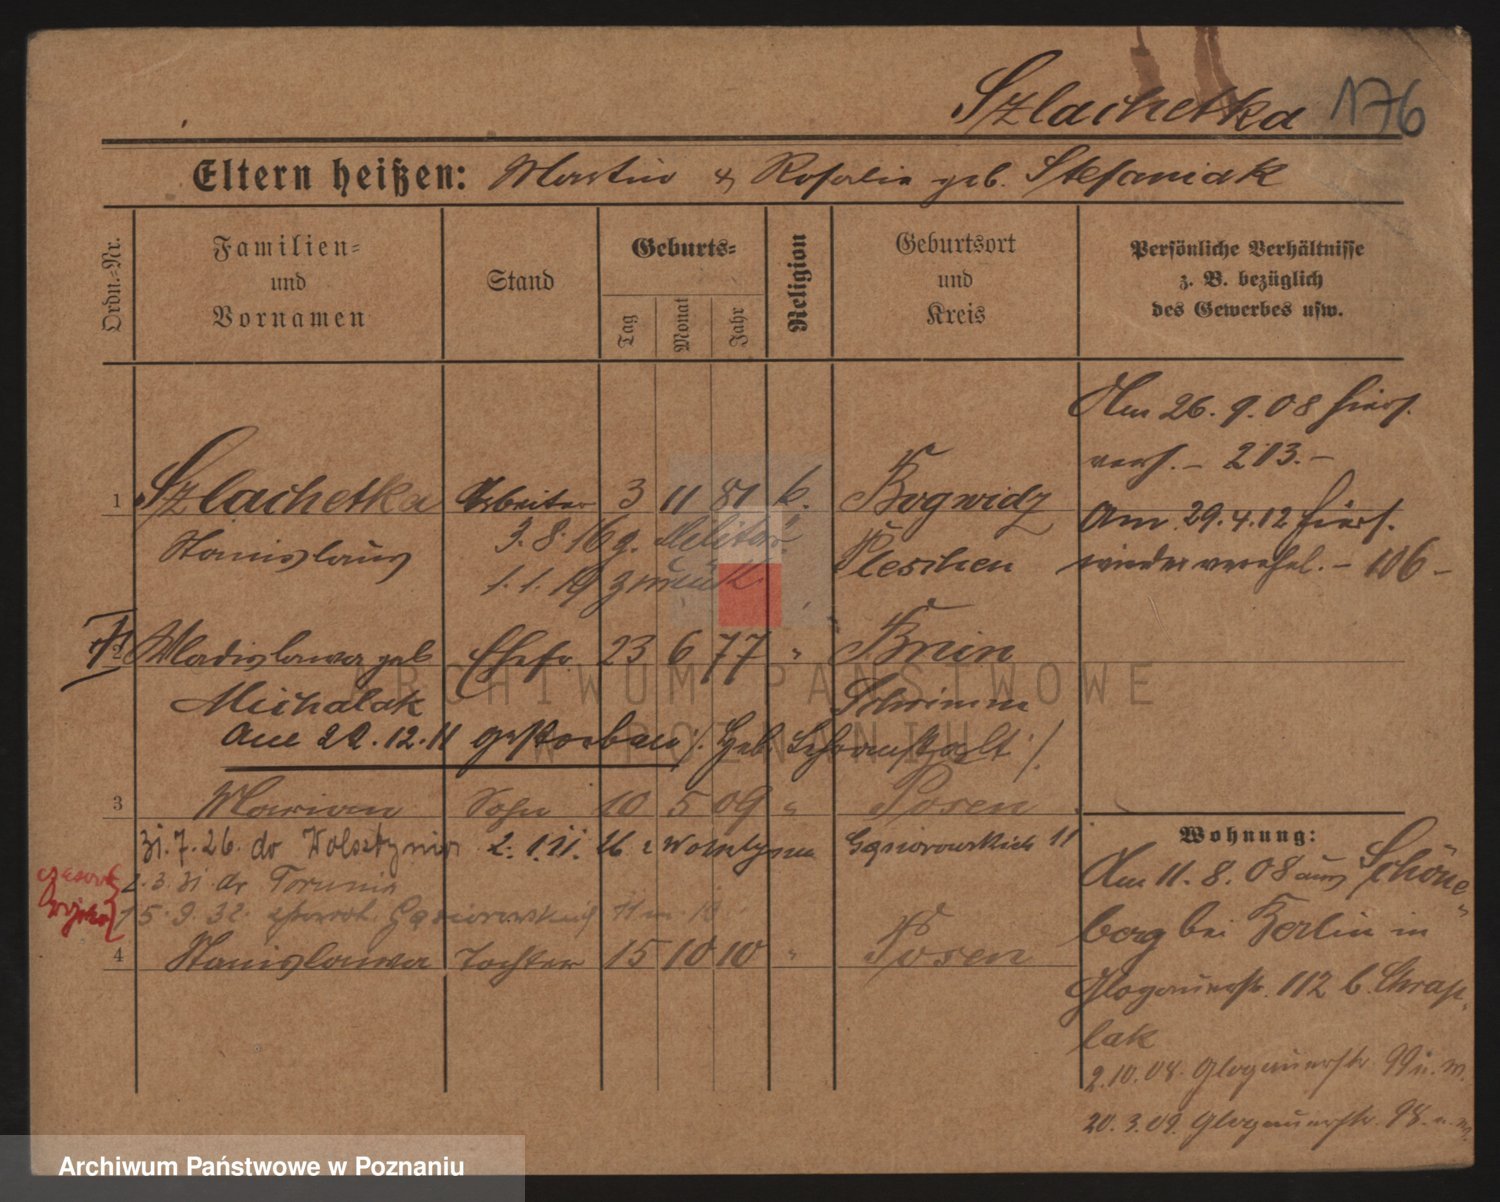 Szlachetka 176
Eltern heißen: Martin & Rosalie geb. Stefaniak
Ordn.-Nr.
Familien- und Vornamen
Stand
Geburts-
Tag
Monat
Jahr
Religion
Geburtsort und Kreis
Persönliche Verhältnisse
z. B. bezüglich
des Gewerbes usw.
Am 26. 9. 08 hiers.
verh. – 213. –
1 Szlachetka Arbeiter 3 11 81 k. Bogwidz
Am 29. 4. 12 hiers.
Stanislaus 3. 8. 16 z. Militär Pleschen
wieder verehel. – 106 –
1. 1. 19 zurück.
2 Wladislawa geb. Ehefr. 23 6 77 " Bnin
Michalak Schrimm
Am 22. 12. 11 gestorben /. Geb.
3 Marian Sohn 10 5 09 " Posen
31. 7. 26. do Wolsztynia 2. 11. 26 z Wolsztyna Gąsiorowskich 11
2. 3. 31 do Torunia
15. 9. 32. Gąsiorowskich 11 m. 10
4 Stanislawa Tochter 15 10 10 " Posen
Wohnung:
Am 11. 8. 08 aus Schöne-
berg bei Berlin in
Glogauerstr. 112 b. Chrap-
lak
2. 10. 08. Glogauerstr. 99
20. 3. 09. Glogauerstr. 98.
ARCHIWUM PAŃSTWOWE
W POZNANIU
Archiwum Państwowe w Poznaniu